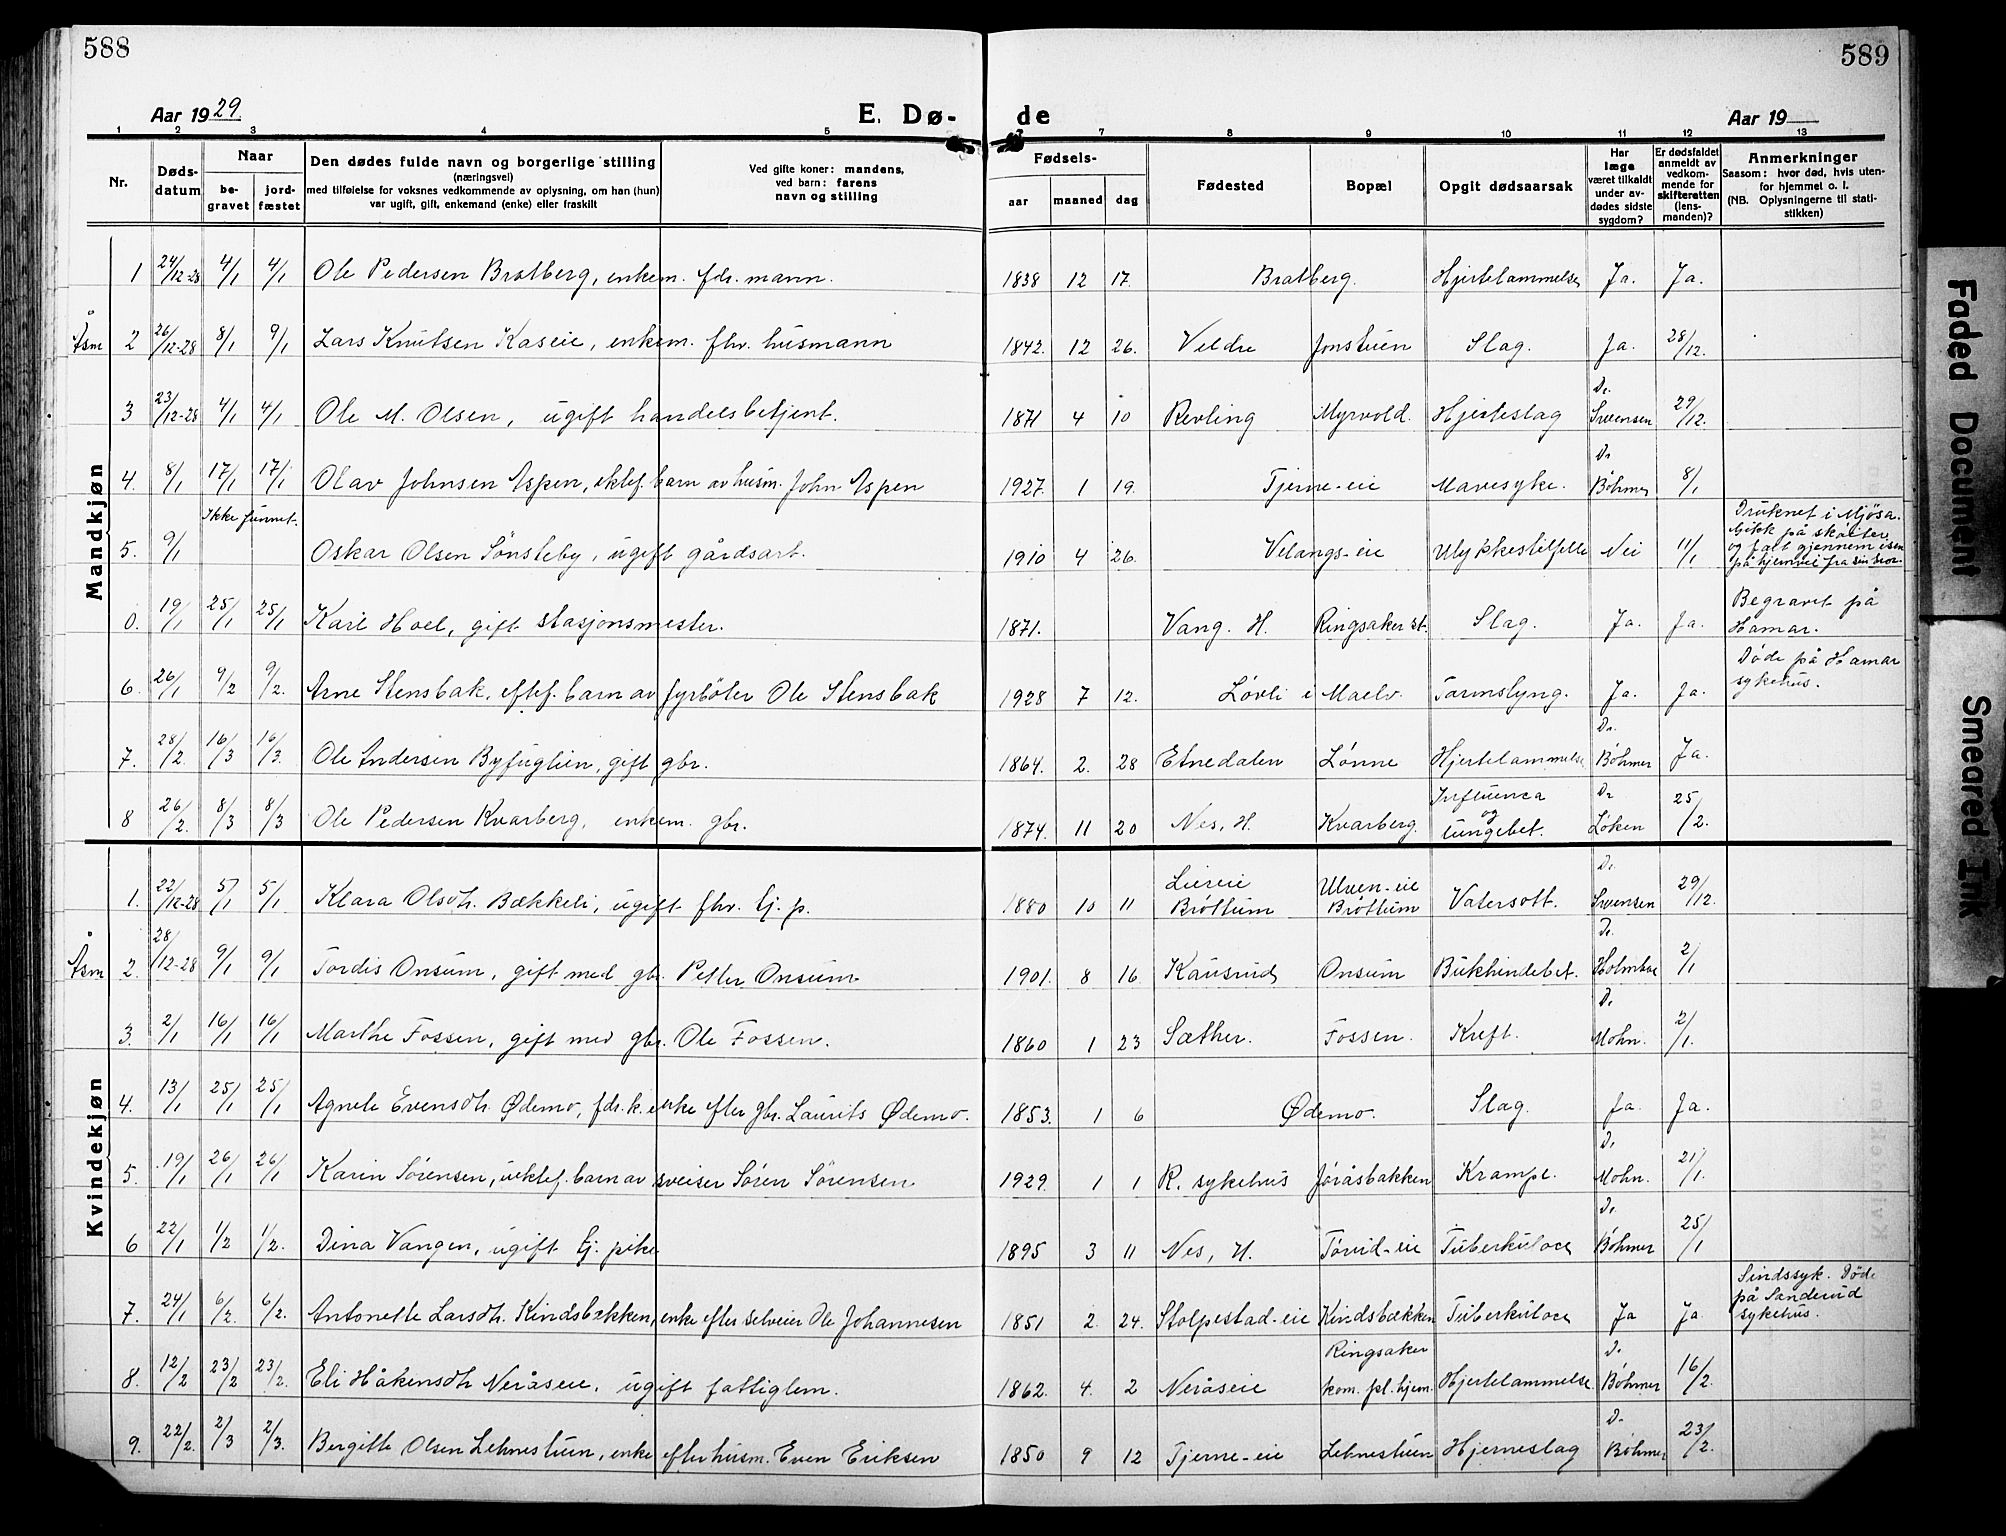 588
589
Aar 1929.
E. Dø-
de
Aar 19
1 2 3 4 5 6 7 8 9 10 11 12 13
Nr.
Døds-datum
Naar
be-gravet
jord-fæstet
Den dødes fulde navn og borgerlige stilling
(næringsvei)
med tilføielse for voksnes vedkommende av oplysning, om han (hun)
var ugift, gift, enkemand (enke) eller fraskilt
Ved gifte koner: mandens,
ved barn: farens
navn og stilling
Fødsels-
aar maaned dag
Fødested
Bopæl
Opgit dødsaarsak
Har læge været tilkaldt under av-dødes sidste sygdom?
Er dødsfaldet anmeldt av vedkom-mende for skifteretten (lens-manden)?
Anmerkninger
Saasom: hvor død, hvis uten-
for hjemmet o. l.
(NB. Oplysningerne til stati-
stikken)
Mandkjøn
1 24/12-28 4/1 4/1 Ole Pedersen Bratberg, enkem. fdr. mann. 1838 12 17. Bratberg. Hjertelammelse Ja. Ja.
Åsm 2 26/12-28 8/1 9/1 Lars Knutsen Kaseie, enkem. fhv. husmann 1842. 12 26. Veldre Jonstuen Slag. Ja. 28/12.
3 23/12-28 4/1 4/1 Ole M. Olsen, ugift handelsbetjent. 1871 4 10 Revling Myrvold. Hjerteslag Dr. Svensen 29/12.
4. 8/1 17/1 17/1 Olav Johnsen Aspen, ektef. barn av husm. John Aspen 1927. 1 19. Tjerne-eie Mavesyke. Dr Bøhmer 8/1
5. 9/1 Ikke funnet. Oskar Olsen Sønsteby, ugift gårdsarb. 1910 4 26. Velangs-eie Ulykkestilfelle Nei 11/1 Druknet i Mjøsa.
Gikk på skøiter
og falt gjennem isen
på hjemvei fra sin bror.
0. 19/1 25/1 25/1 Karl Hoel, gift stasjonsmester. 1871. Vang. H. Ringsaker st. Slag. Ja. Ja. Begravet på
Hamar.
6. 26/1 9/2 9/2. Arne Stensbak, ektef. barn av fyrbøter Ole Stensbak 1928 7 12. Løvli i Maelv. Tarmslyng. Ja. Ja. Døde på Hamar
sykehus.
7. 28/2. 16/3 16/3. Ole Andersen Byfuglien, gift gbr. 1864. 2. 28 Etnedalen Lønne Hjertelammelse Dr. Bøhmer Ja.
8 26/2. 8/3 8/3 Ole Pedersen Kvarberg, enkem. gbr. 1874. 11 20 Nes, H. Kvarberg. Influensa og lungebet. Dr Løken 25/2.
Kvindekjøn
1. 22/12-28 5/1 5/1 Klara Olsdtr. Bækkeli, ugift fhv. tj. p. 1880 10 11 Liereie Brøttum Ulven-eie Brøttum Vatersott. Dr. Svensen 29/12.
Åsm 2. 28/12-28 9/1 9/1 Tordis Onsum, gift med gbr. Petter Onsum 1901. 8 16 Kausrud Onsum Bukhindebet. Dr. Holmboe 2/1
3. 2/1 16/1 16/1 Marthe Fossen, gift med gbr. Ole Fossen. 1860 1 23 Sæther. Fossen. Kreft. Dr Mohn. 2/1.
4. 13/1 25/1 25/1 Agnete Evensdtr. Ødemo, fdr. k. enke efter gbr. Laurits Ødemo. 1853. 1 6 Ødemo. Slag. Ja. Ja.
5. 19/1 26/1 26/1 Karin Sørensen, uektef. barn av sveiser Søren Sørensen 1929. 1 1 R. sykehus Jøråsbakken Krampe. Dr Mohn. 21/1.
6 22/1 1/2 1/2. Dina Vangen, ugift tj. pike 1895 3 11 Nes, H. Tørud-eie Tuberkulose Dr Bøhmer 25/1
7. 24/1 6/2 6/2. Antonette Larsdtr. Kindsbækken, enke efter selveier Ole Johannesen 1851 2. 24. Stolpestad-eie Kindsbækken Tuberkulose Ja Ja. Sindssyk. Døde
på Sanderud
sykehus.
8. 12/2 23/2 23/2. Eli Håkensdtr Neråseie, ugift fattiglem. 1862. 4. 2 Neråseie Ringsaker kom. pl. hjem. Hjertelammelse Dr. Bøhmer 16/2.
9. 22/2. 2/3 2/3. Bergitte Olsen Lehnestuen, enke efter husm. Even Eriksen 1850 9 12 Tjerne-eie Lehnestuen Hjerneslag Dr. Bøhmer 23/2.
Faded Document
Smeared Ink